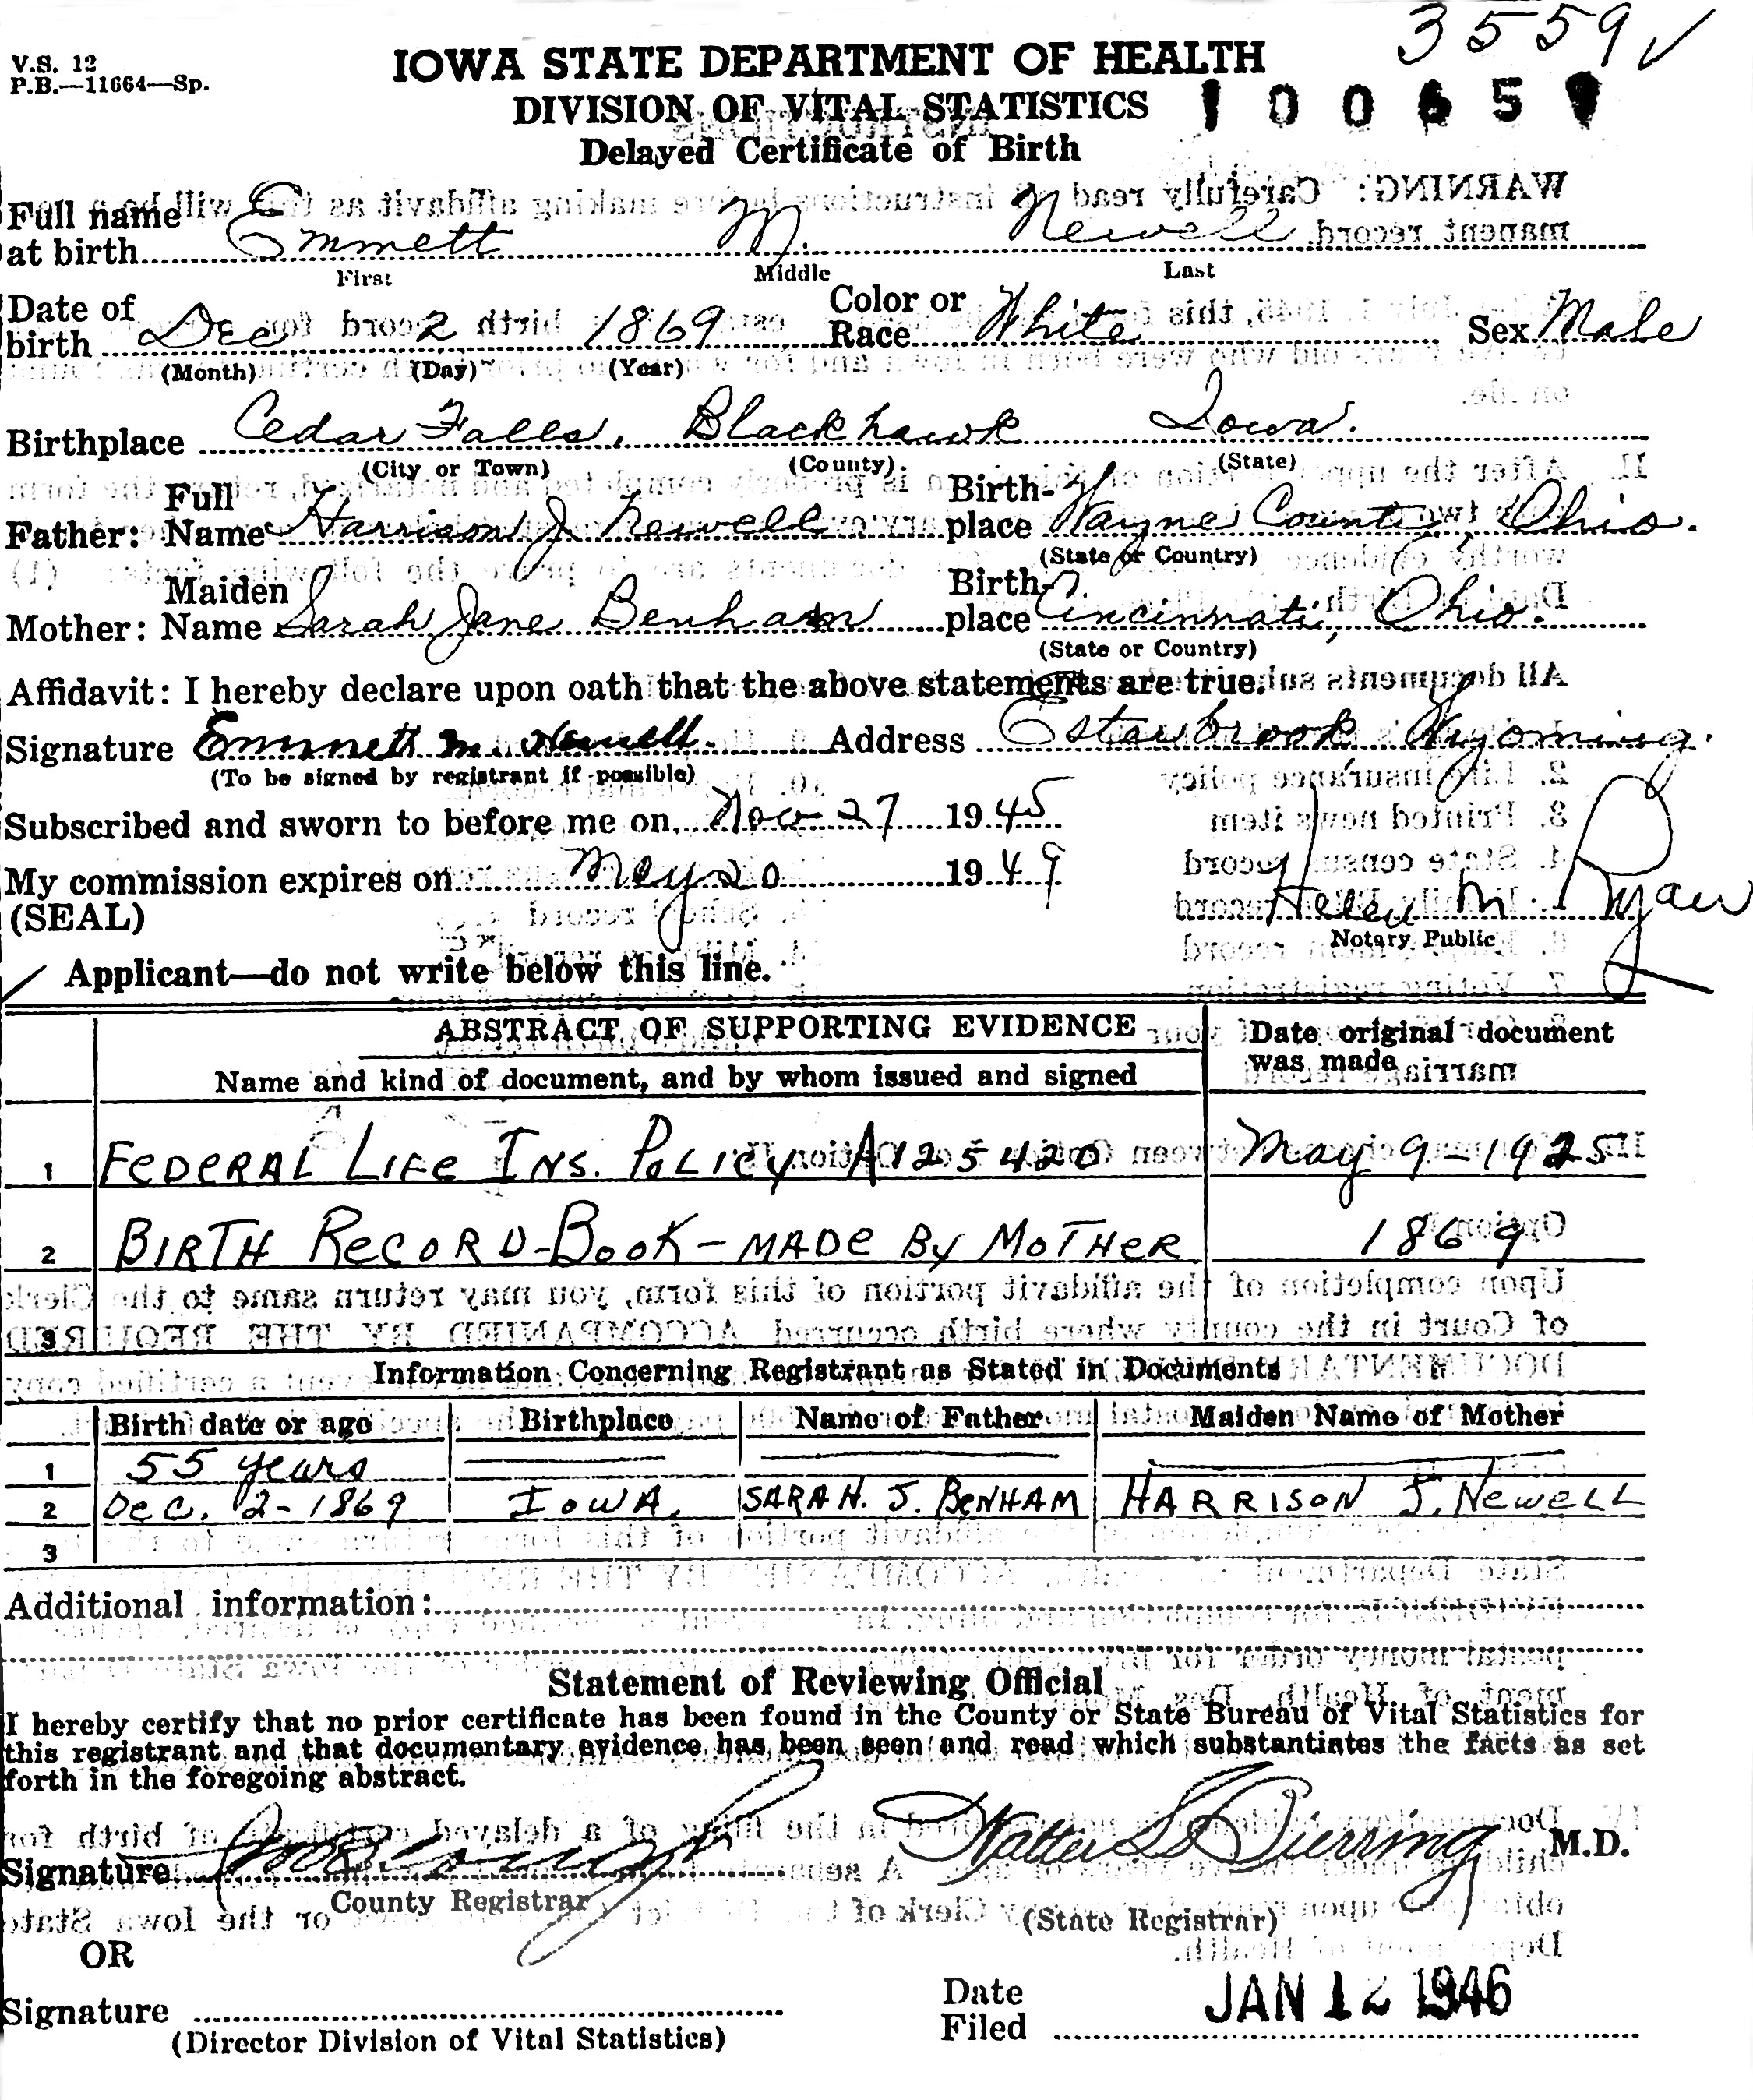 3559 ✓
V.S. 12
P.B.—11664—Sp.
IOWA STATE DEPARTMENT OF HEALTH
DIVISION OF VITAL STATISTICS
Delayed Certificate of Birth
Full name at birth Emmett M. Newell
First Middle Last
Date of birth Dec 2 1869 Color or Race White Sex Male
(Month) (Day) (Year)
Birthplace Cedar Falls, Blackhawk Iowa.
(City or Town) (County) (State)
Father: Full Name Harrison J Newell Birth-place Wayne County, Ohio.
(State or Country)
Mother: Maiden Name Sarah Jane Benham Birth-place Cincinnati, Ohio.
(State or Country)
Affidavit: I hereby declare upon oath that the above statements are true.
Signature Emmett M. Newell. Address Esterbrook Wyoming.
(To be signed by registrant if possible)
Subscribed and sworn to before me on Nov 27 1945
My commission expires on May 20 1949
(SEAL) Helen M Ryan
Notary Public
Applicant—do not write below this line.
ABSTRACT OF SUPPORTING EVIDENCE
Name and kind of document, and by whom issued and signed
Date original document was made
1 FEDERAL LIFE INS. POLICY A125420 May 9-1925
2 BIRTH RECORD-BOOK-MADE BY MOTHER 1869
3
Information Concerning Registrant as Stated in Documents
Birth date or age Birthplace Name of Father Maiden Name of Mother
1 55 years
2 Dec. 2-1869 IOWA. SARAH. J. BENHAM HARRISON J. NEWELL
3
Additional information:
Statement of Reviewing Official
I hereby certify that no prior certificate has been found in the County or State Bureau of Vital Statistics for
this registrant and that documentary evidence has been seen and read which substantiates the facts as set
forth in the foregoing abstract.
Signature Walter L. Bierring M.D.
County Registrar (State Registrar)
OR
Signature
(Director Division of Vital Statistics)
Date Filed JAN 12 1946